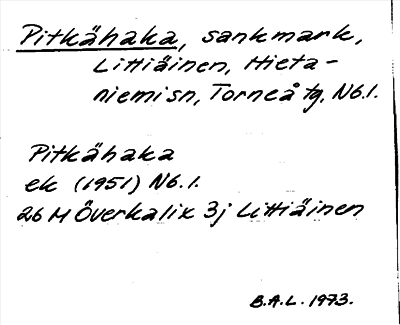 Pitkähaka, sankmark,
Littiäinen, Hieta-
niemisn, Torneå tg, Nb.l.
Pitkähaka
ek (1951) Nb.l.
26 M Överkalix 3j Littiäinen
B.A.L. 1973.